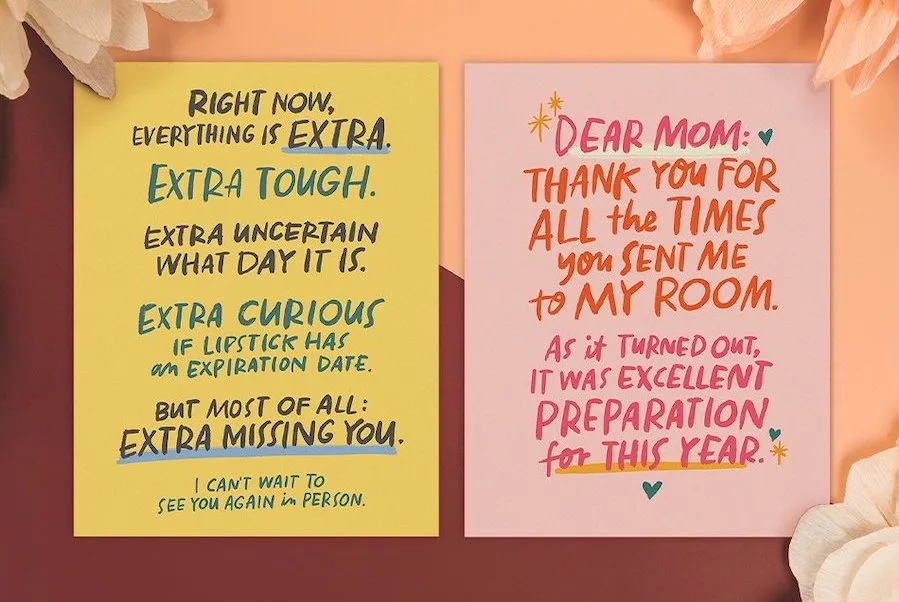 RIGHT NOW,
EVERYTHING IS EXTRA.
EXTRA TOUGH.
EXTRA UNCERTAIN
WHAT DAY IT IS.
EXTRA CURIOUS
IF LIPSTICK HAS
an EXPIRATION DATE.
BUT MOST OF ALL:
EXTRA MISSING YOU.
I CAN'T WAIT TO
SEE YOU AGAIN in PERSON.
DEAR MOM:
THANK YOU FOR
ALL the TIMES
you SENT ME
to MY ROOM.
As it TURNED OUT,
IT WAS EXCELLENT
PREPARATION
for THIS YEAR.